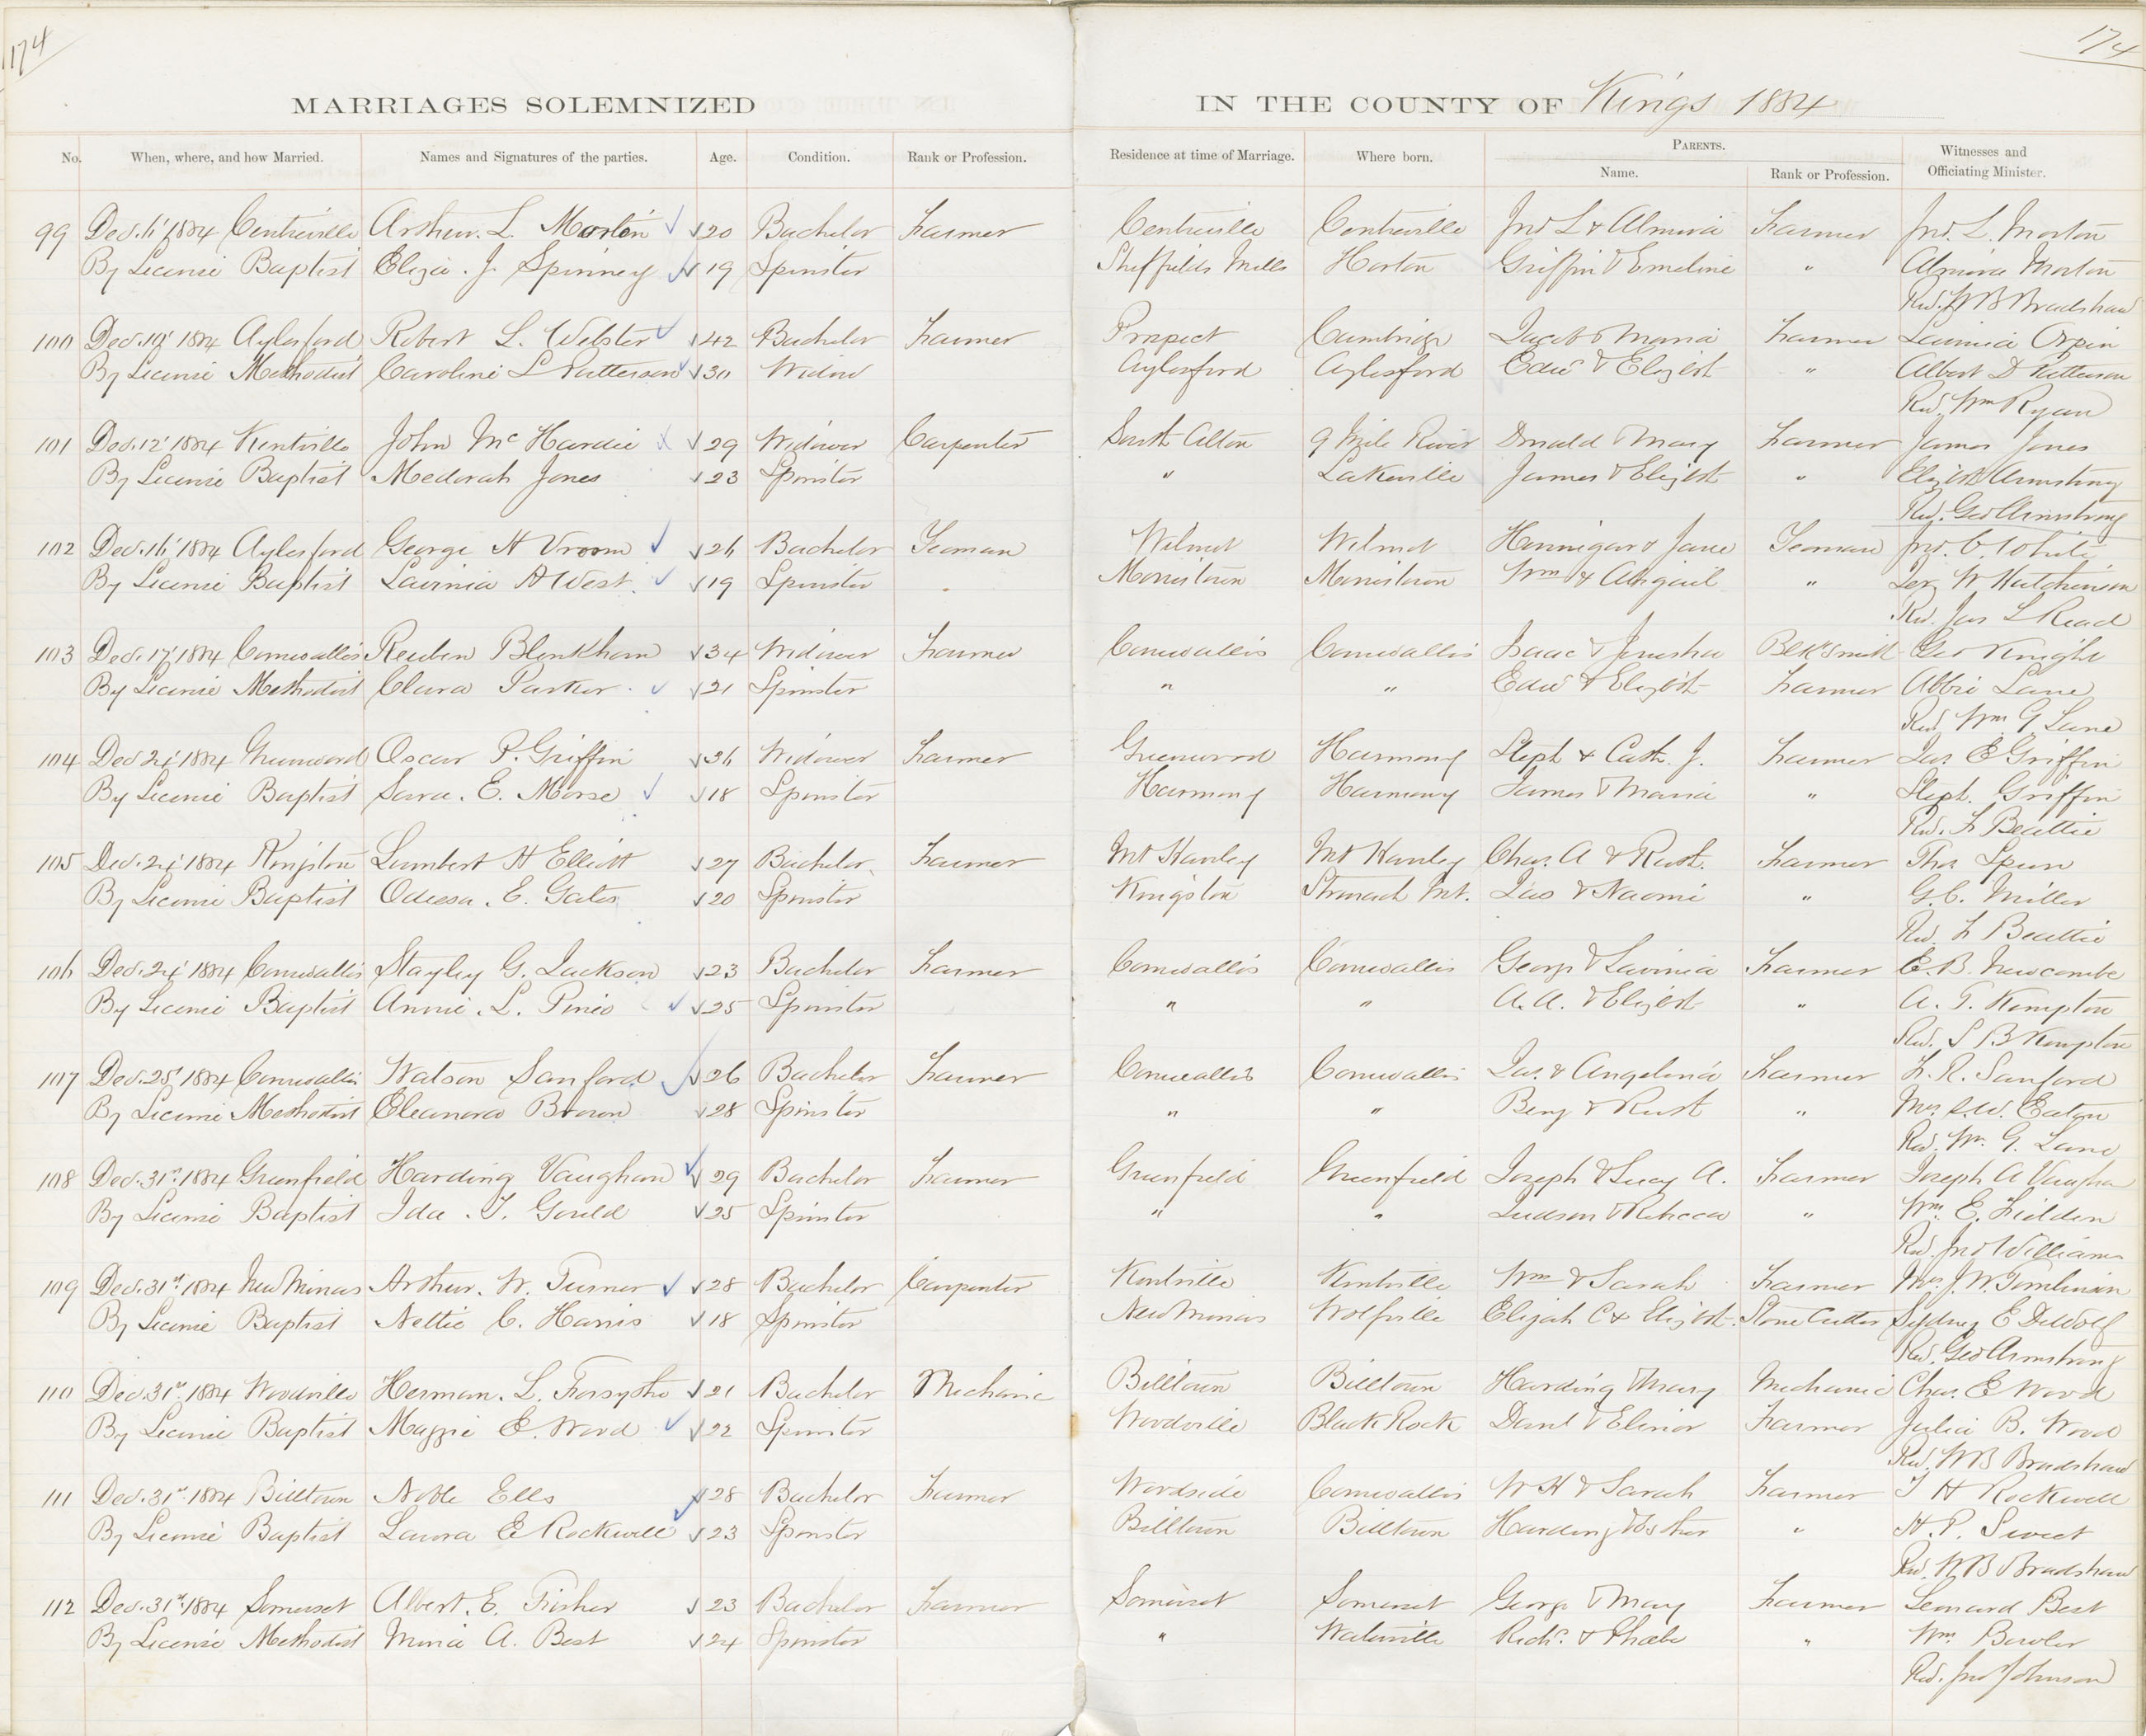 174
174
MARRIAGES SOLEMNIZED IN THE COUNTY OF Kings 1884
No. When, where, and how Married. Names and Signatures of the parties. Age. Condition. Rank or Profession. Residence at time of Marriage. Where born. PARENTS. Witnesses and Officiating Minister.
Name. Rank or Profession.
99 Dec. 11' 1884 Centreville Arthur. L. Morton 20 Bachelor Farmer Centreville Centreville Jno L & Almira Farmer Jno. L. Morton
By License Baptist Eliza. J. Spinney 19 Spinster Sheffields Mills Horton Griffin & Emeline " Almira Morton
Rev. W B Bradshaw
100 Dec. 10' 1884 Aylesford Robert L. Webster 42 Bachelor Farmer Prospect Cambridge Jacob & Maria Farmer Lavinia Orpin
By License Methodist Caroline L Patterson 30 Widow Aylesford Aylesford Edwd & Elizbth " Albert D Patterson
Rev. Wm Ryan
101 Dec. 12' 1884 Kentville John Mc Hardie 29 Widower Carpenter South Alton 9 Mile River Donald & Mary Farmer James Jones
By License Baptist Medorah Jones 23 Spinster " Lakeville James & Elizbth " Elizbth Armstrong
Rev. Geo Armstrong
102 Dec. 16' 1884 Aylesford George H Vroom 26 Bachelor Yeoman Wilmot Wilmot Hennigar & Jane Yeoman Jno. C. White
By License Baptist Lavinia A West. 19 Spinster Morristown Morristown Wm & Abigail " W Hutchinson
Rev. Jas L Read
103 Dec. 17' 1884 Cornwallis Reuben Blenkhorn 34 Widower Farmer Cornwallis Cornwallis Isaac & Jerusha Blk Smith Geo Knight
By License Methodist Clara Parker. 21 Spinster " " Edwd & Elizbth Farmer Abbie Lane
Rev Wm G Lane
104 Dec 24' 1884 Greenwood Oscar P. Griffin 36 Widower Farmer Greenwood Harmony Steph & Cath. J. Farmer Jas E Griffin
By License Baptist Sara. E. Morse 18 Spinster Harmony Harmony James & Maria " Steph. Griffin
Rev. F Beattie
105 Dec. 24' 1884 Kingston Lambert H Elliott 27 Bachelor Farmer Mt Hanley Mt Hanley Chas. A & Rush. Farmer Thos Spurr
By License Baptist Odessa. E. Gates 20 Spinster Kingston Stronach Mt. Jas & Naomi " G. C. Miller
Rev. F Beattie
106 Dec. 24' 1884 Cornwallis Stayley G. Jackson 23 Bachelor Farmer Cornwallis Cornwallis George & Lavinia Farmer E. B. Newcombe
By License Baptist Annie. L. Pineo 25 Spinster " " A. A. & Elizbth " A. T. Kempton
Rev. S B Kempton
107 Dec. 25' 1884 Cornwallis Watson Sanford 26 Bachelor Farmer Cornwallis Cornwallis Jas. & Angelina Farmer F. R. Sanford
By License Methodist Eleanora Brown 28 Spinster " " Benj & Ruth " Mrs. S. W. Eaton
Rev. Wm. G. Lane
108 Dec. 31st 1884 Greenfield Harding Vaughan 29 Bachelor Farmer Greenfield Greenfield Joseph & Lucy A. Farmer Joseph A Vaughan
By License Baptist Ida. T. Gould 25 Spinster " " Judson & Rebecca " Wm. E. Fielden
Rev. Jno Williams
109 Dec. 31st 1884 New Minas Arthur. W. Turner 28 Bachelor Carpenter Kentville Kentville Wm & Sarah Farmer Mrs. J. W. Tomlinson
By License Baptist Nettie C. Harris 18 Spinster New Minas Wolfville Elijah C & Elizbth. Stone Cutter Sydney E DeWolf
Rev. Geo Armstrong
110 Dec. 31st 1884 Woodville Herman. L. Forsythe 21 Bachelor Mechanic Billtown Billtown Harding & Mary Mechanic Chas. E Wood
By License Baptist Maggie E. Wood 22 Spinster Woodville Black Rock Danl & Elinor Farmer Julia B. Wood
Rev. W B Bradshaw
111 Dec. 31st 1884 Billtown Noble Ells 28 Bachelor Farmer Woodside Cornwallis W H & Sarah Farmer T H Rockwell
By License Baptist Laura E Rockwell 23 Spinster Billtown Billtown Harding & Esther " H. P. Sweet
Rev. W B Bradshaw
112 Dec. 31st 1884 Somerset Albert. E. Fisher 23 Bachelor Farmer Somerset Somerset George & Mary Farmer Leonard Best
By License Methodist Minie A. Best 24 Spinster " Waterville Richd. & Phoebe " Wm Bowler
Rev. Jno Johnson